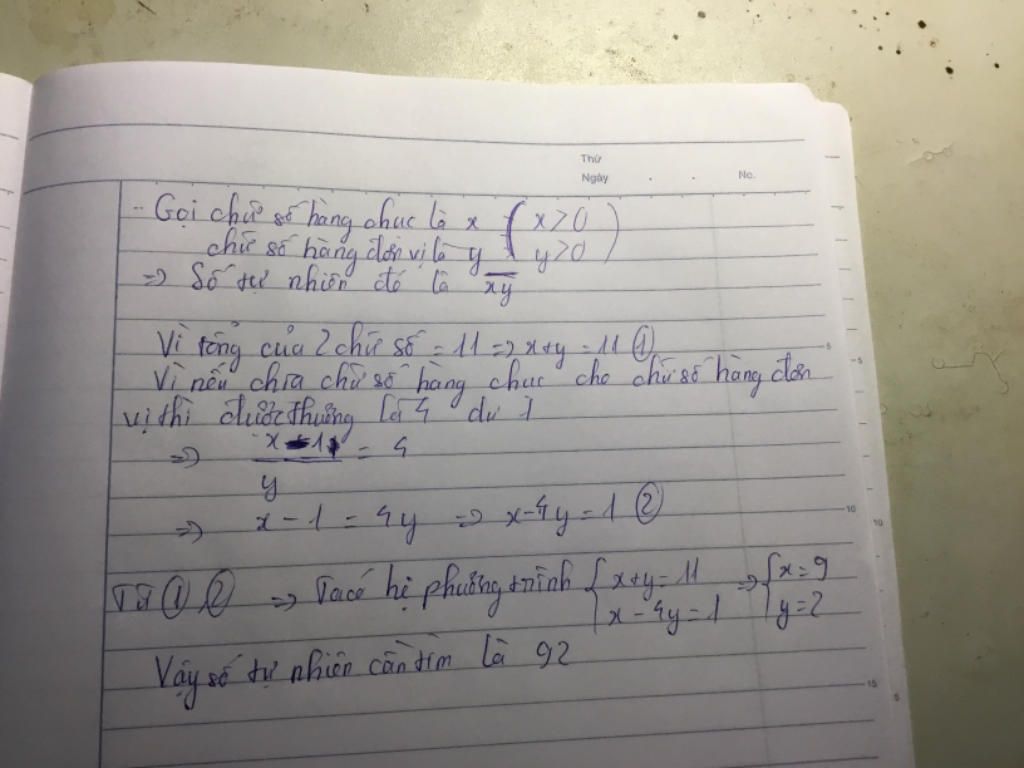 Thứ
Ngày . . No.
- Gọi chữ số hàng chục là x ( x>0
chữ số hàng đơn vị là y y>0 )
=> Số tự nhiên đó là xy
Vì tổng của 2 chữ số = 11 => x+y = 11 ①
Vì nếu chia chữ số hàng chục cho chữ số hàng đơn
vị thì được thương là 4 dư 1
=> x-1/y = 4
=> x - 1 = 4y => x-4y = 1 ②
Từ ① ② => Ta có hệ phương trình { x+y = 11 => { x = 9
x - 4y = 1 y = 2
Vậy số tự nhiên cần tìm là 92
5
10
15